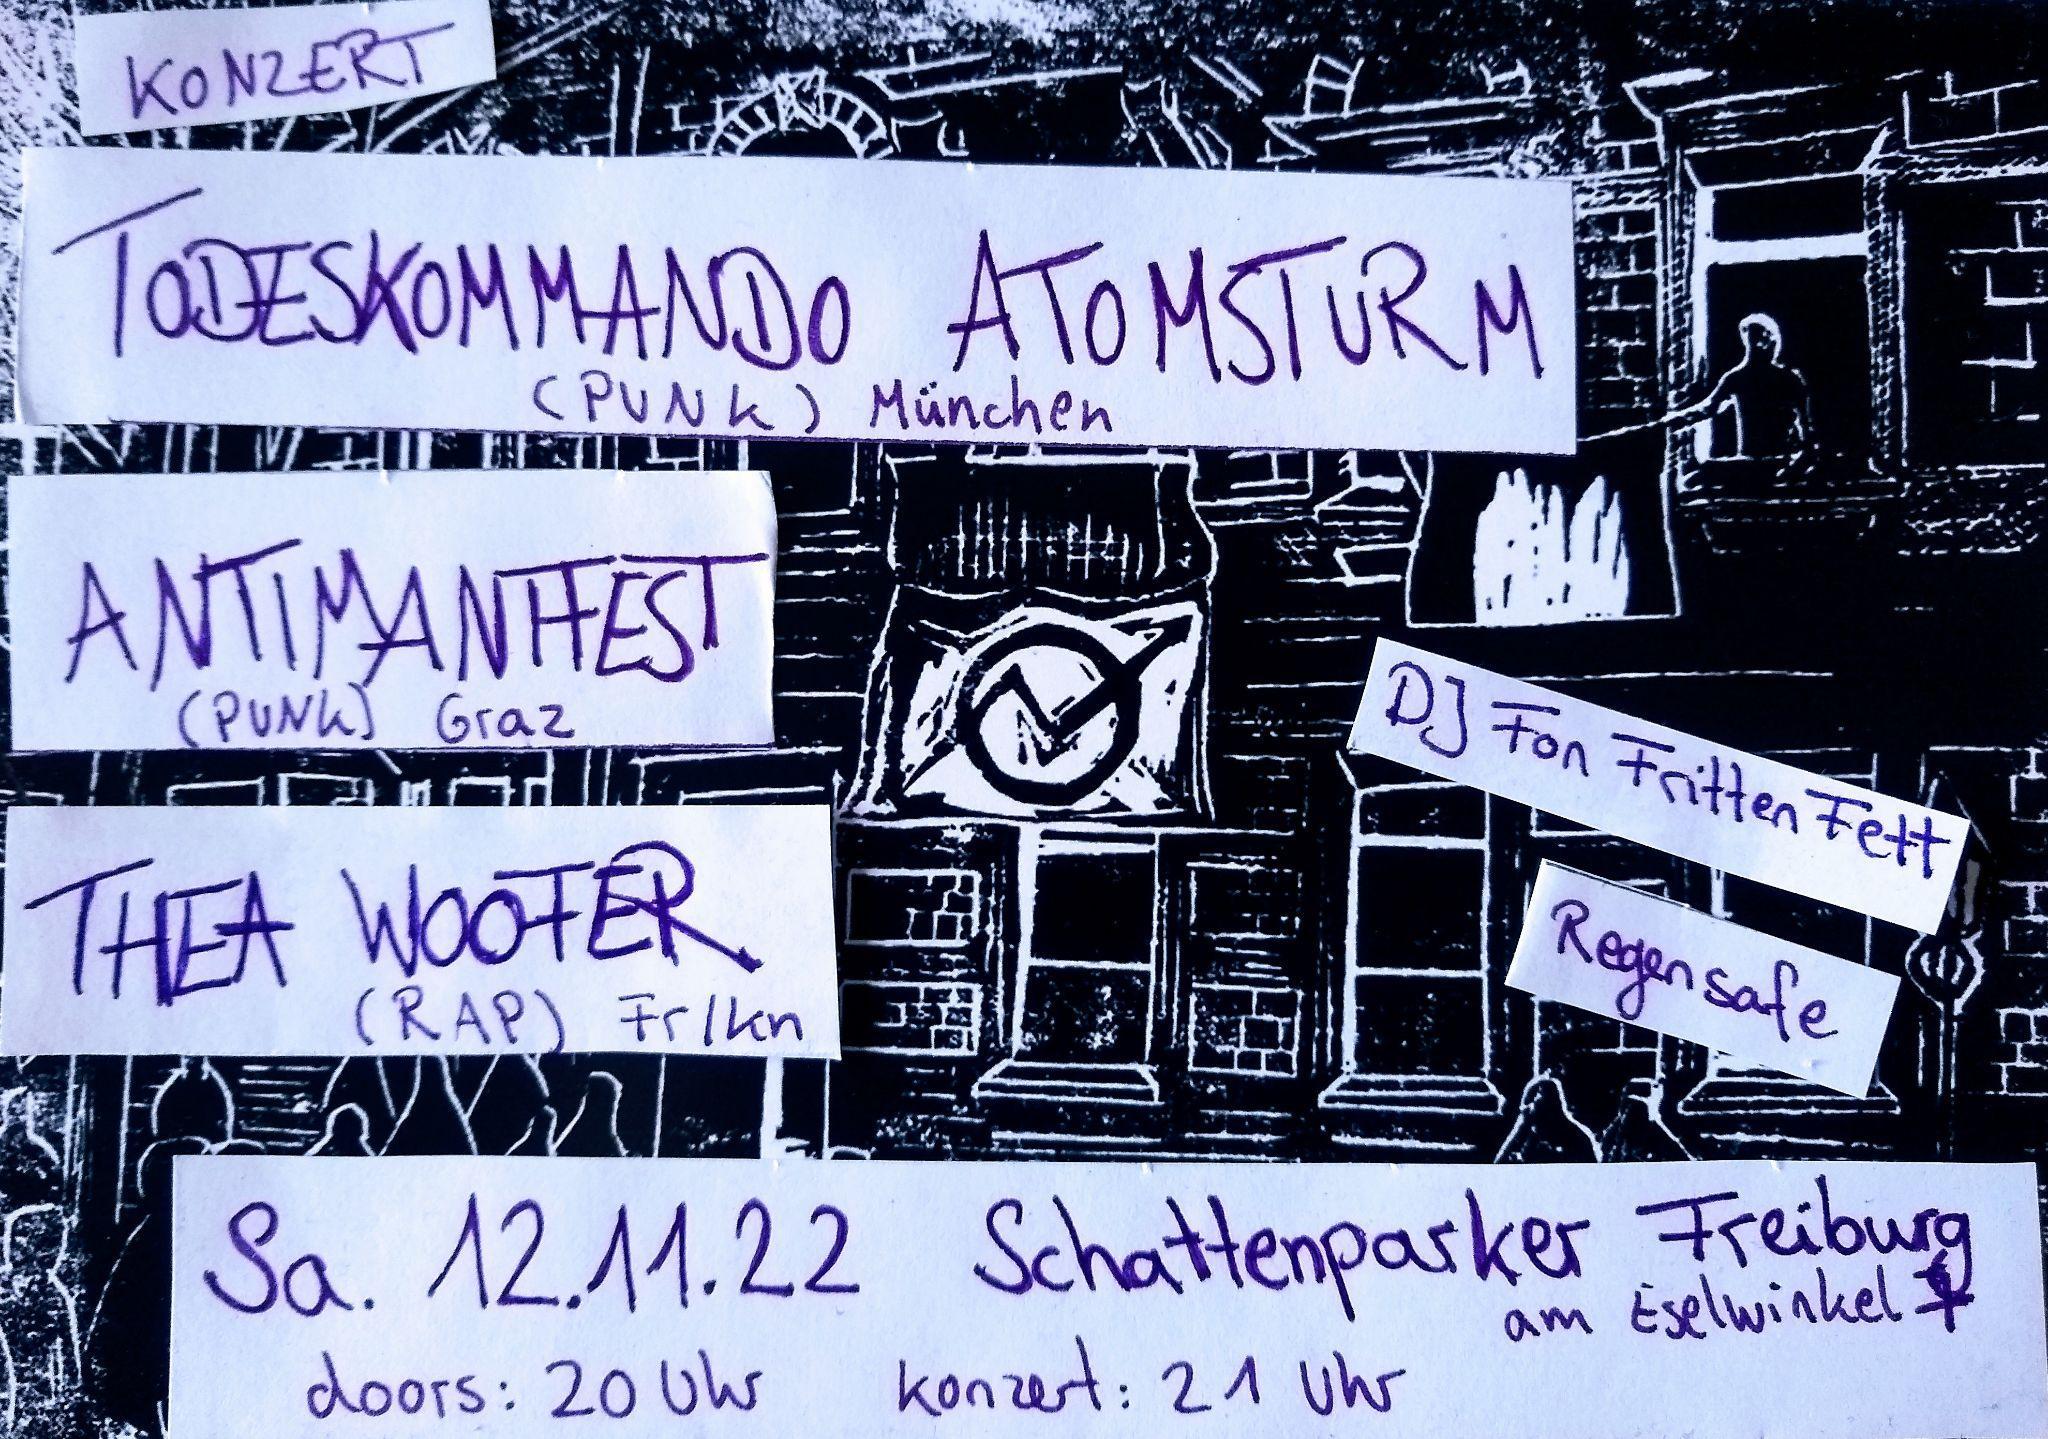 KONZERT
TODESKOMMANDO ATOMSTURM
(PUNK) München
ANTIMANIFEST
(PUNK) Graz
THEA WOOFER
(RAP) Fr/kn
DJ Fon Fritten Fett
Regensafe
Sa. 12.11.22 Schattenparker Freiburg
am Eselwinkel
doors: 20 Uhr konzert: 21 Uhr